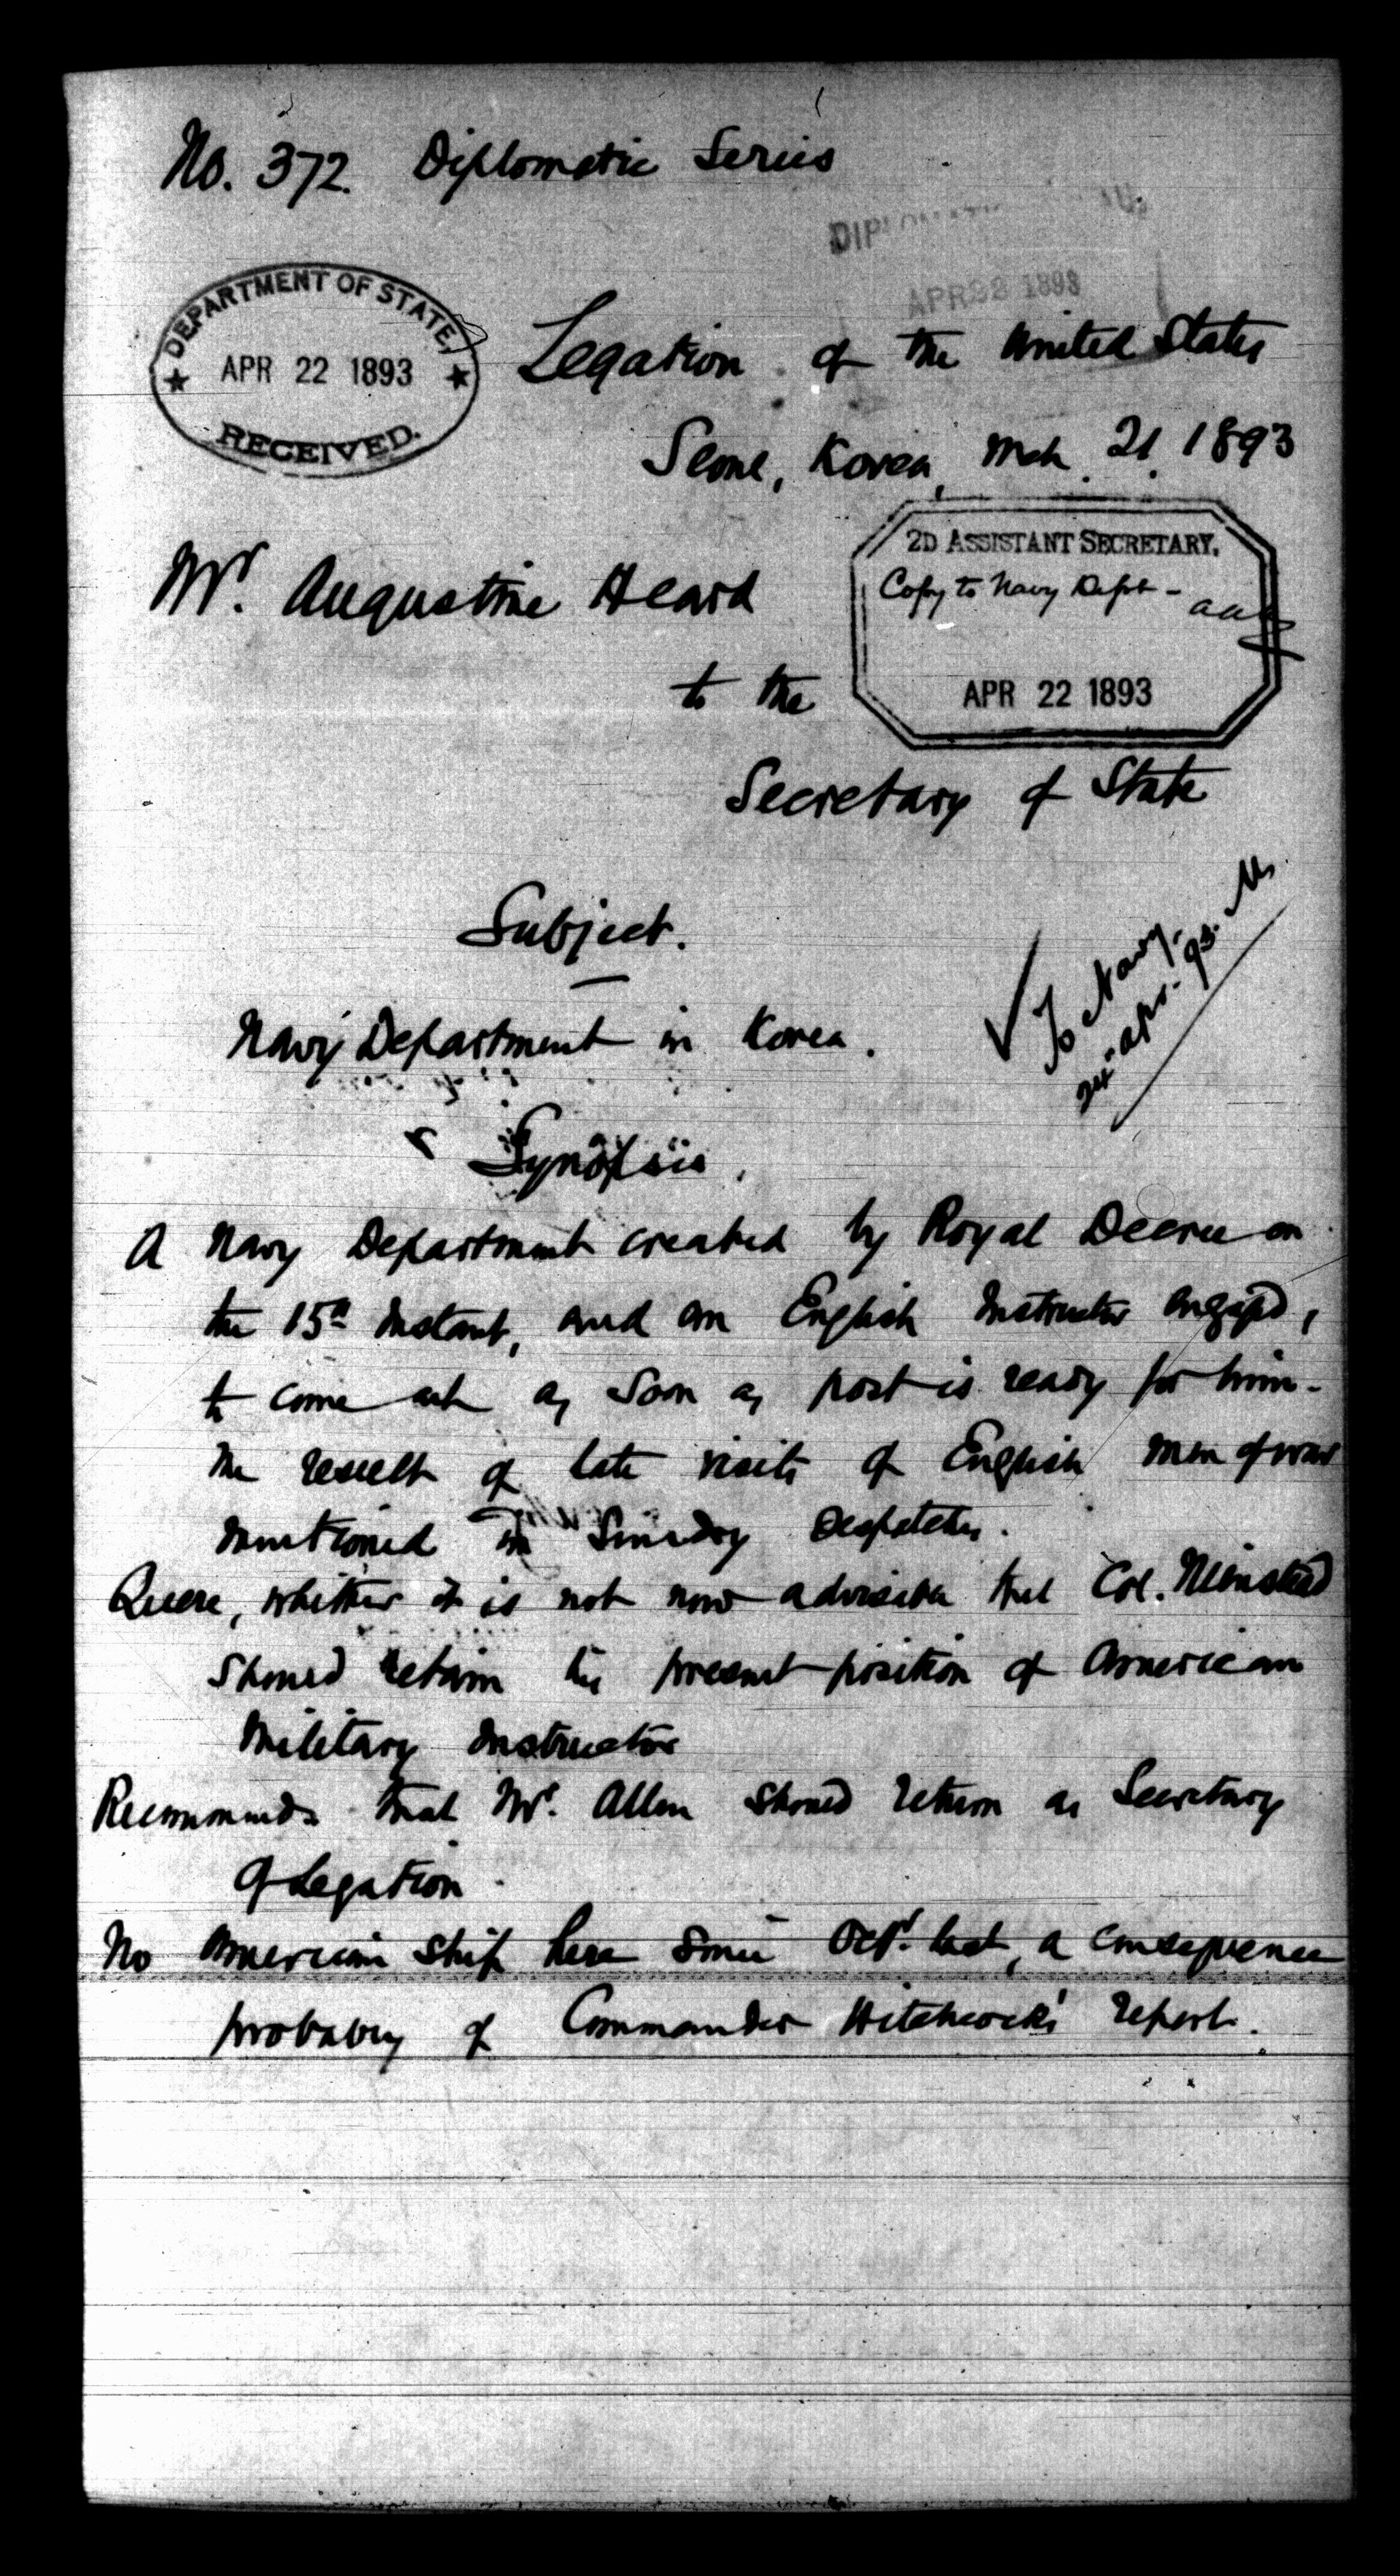 No. 372. Diplomatic Series
DIPLOMATIC
APR 22 1893
DEPARTMENT OF STATE,
APR 22 1893
RECEIVED.
Legation of the United States
Seoul, Korea, Mch. 21. 1893
2D ASSISTANT SECRETARY.
Copy to Navy Dept - aaa
APR 22 1893
Mr. Augustine Heard
to the
Secretary of State
Subject.
To Navy,
24 apr. 93.
Navy Department in Korea.
Synopsis.
A Navy Department created by Royal Decree on
the 15th instant, and an English Instructor engaged,
to come out as soon as post is ready for him -
the result of late visits of English men of war
mentioned in Sundry Despatches.
Quere, whether it is not now advisable that Col. Nienstead
should retain his present position of American
Military Instructor
Recommends that Mr. Allen should return as Secretary
of Legation.
No American ship here since Octr. last, a consequence
probably of Commander Hitchcock's report.